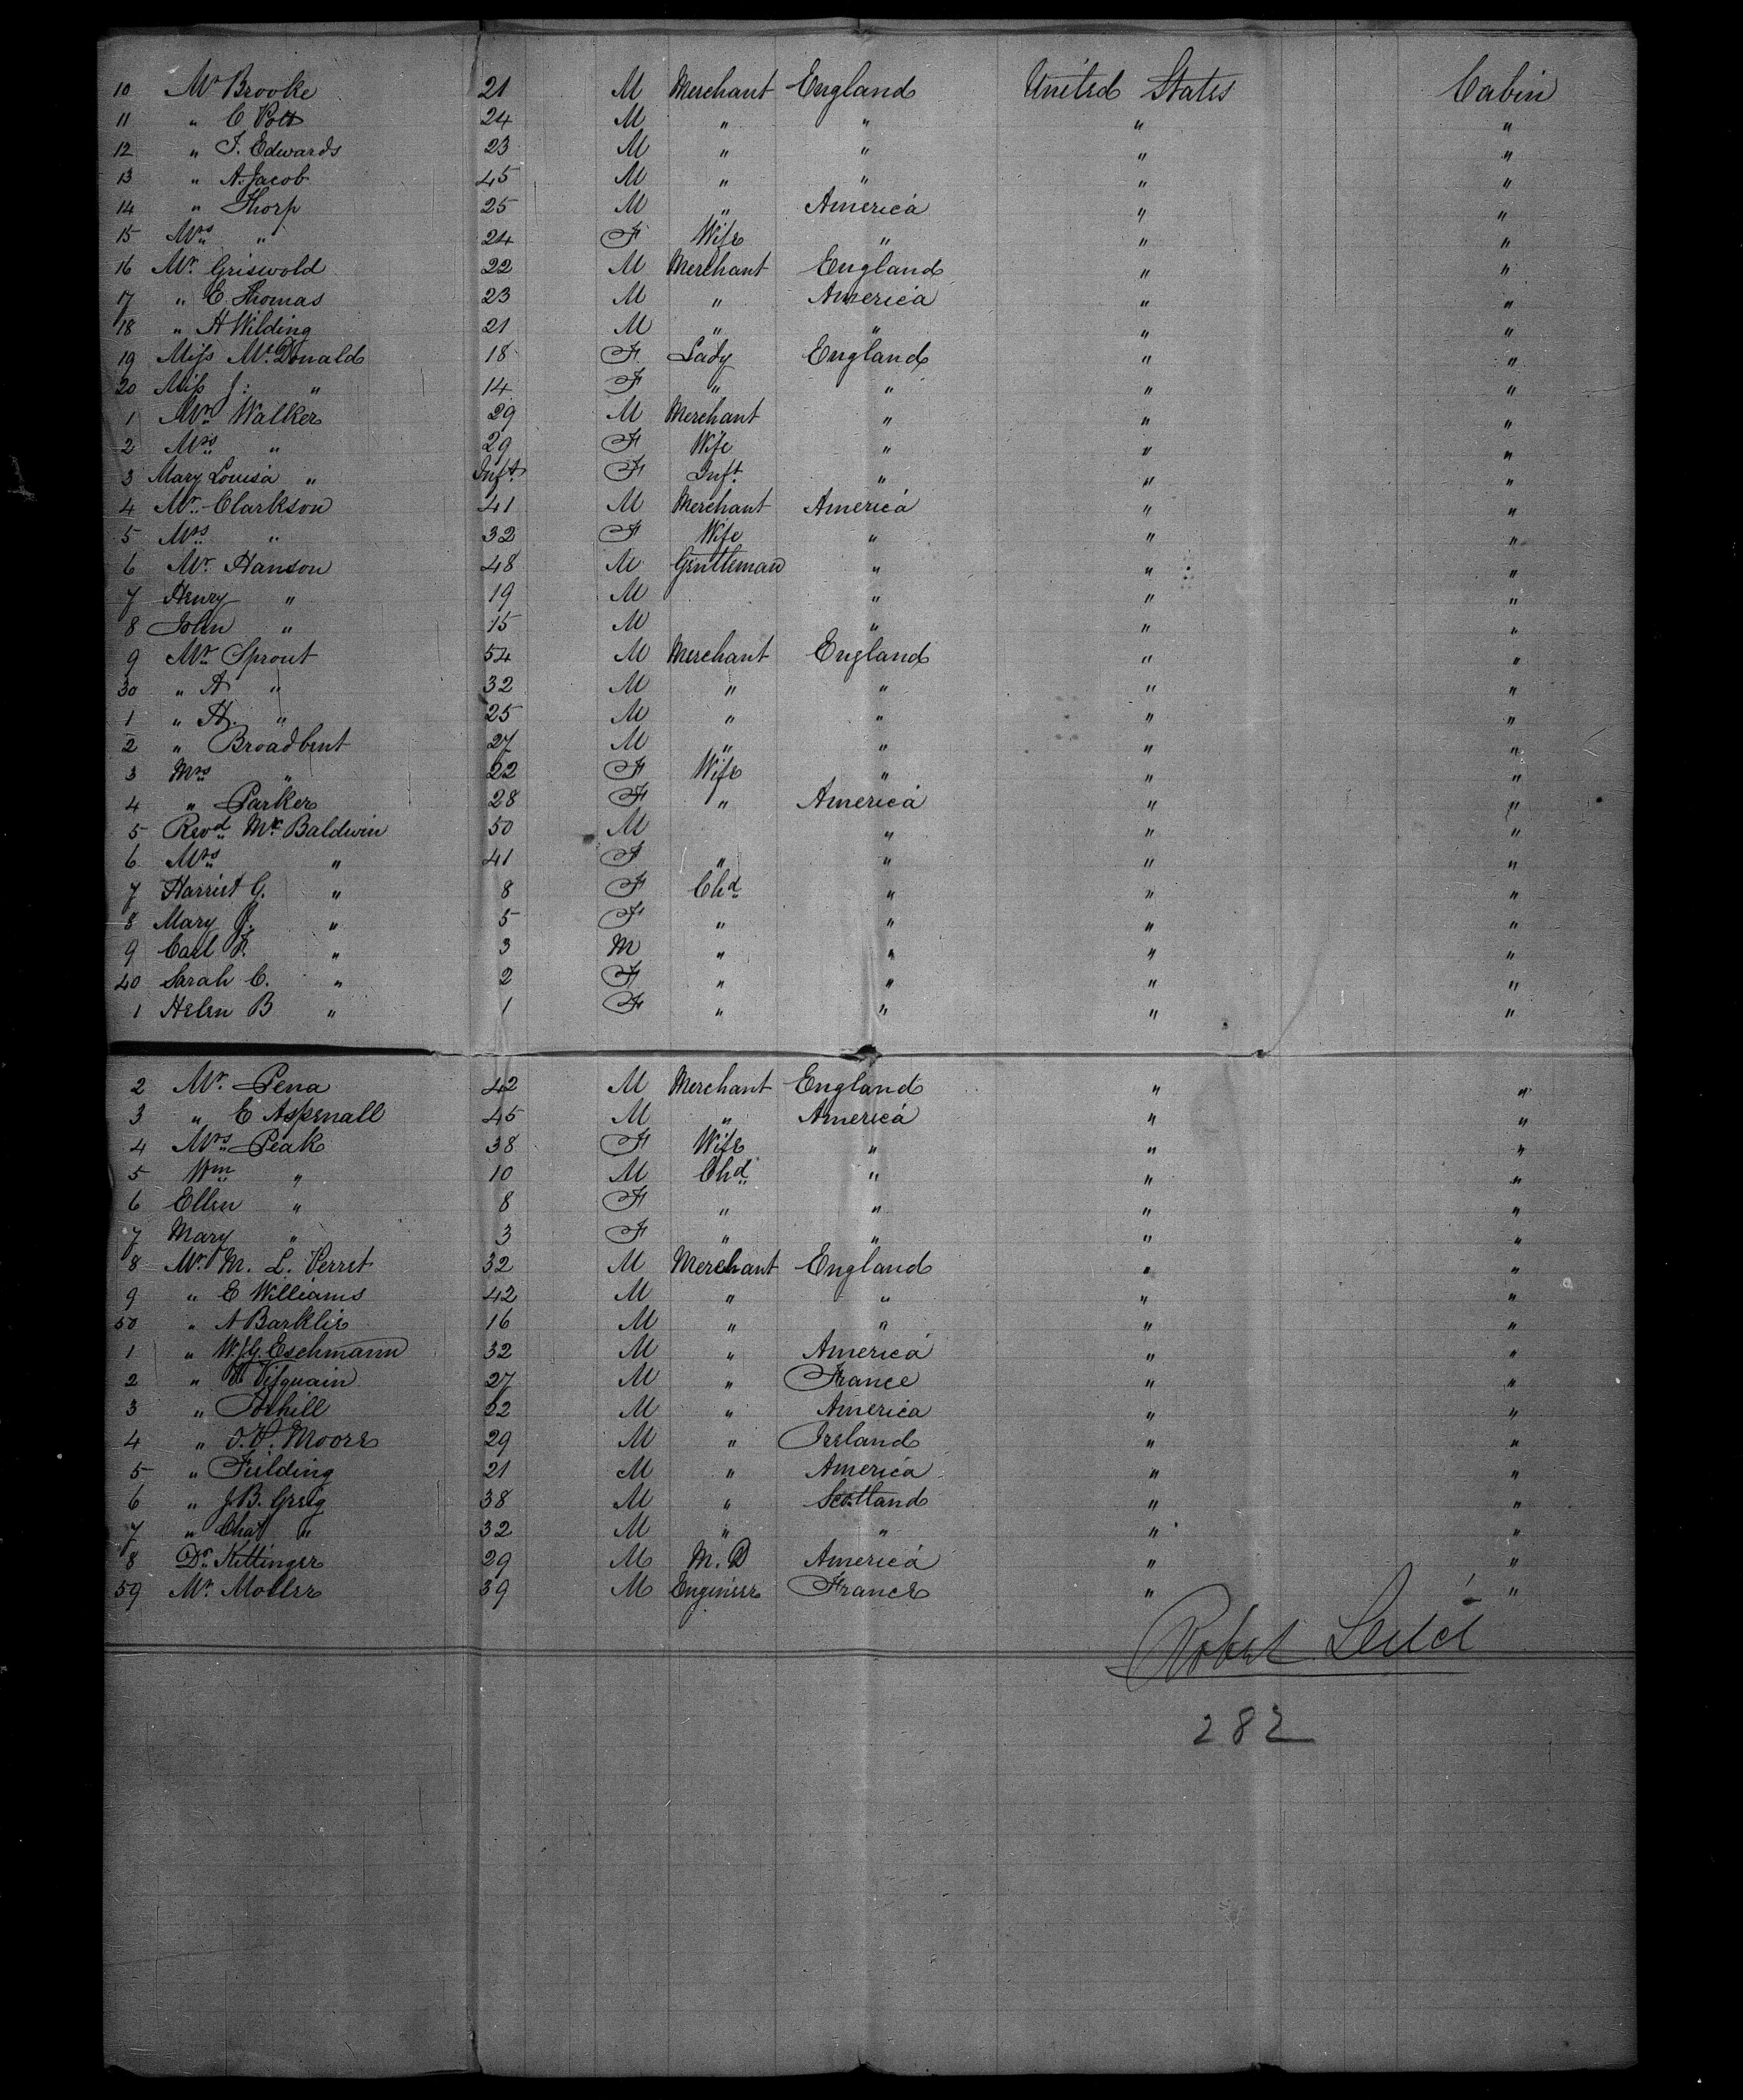 10 Mr Brooke 21 M Merchant England United States Cabin
11 " C Pott 24 M " " " "
12 " J. Edwards 23 M " " " "
13 " A. Jacob 45 M " " " "
14 " Thorp 25 M " America " "
15 Mrs " 24 F Wife " " "
16 Mr Griswold 22 M Merchant England " "
17 " E. Thomas 23 M " America " "
18 " H Wilding 21 M " " " "
19 Miss McDonald 18 F Lady England " "
20 Miss J: " 14 F " " " "
1 Mr Walker 29 M Merchant " " "
2 Mrs " 29 F Wife " " "
3 Mary Louisa " Inft F Inft " " "
4 Mr Clarkson 41 M Merchant America " "
5 Mrs " 32 F Wife " " "
6 Mr Hanson 48 M Gentleman " " "
7 Henry " 19 M " " "
8 John " 15 M " " "
9 Mr Sprout 54 M Merchant England " "
30 " A " 32 M " " " "
1 " H. " 25 M " " " "
2 " Broadbent 27 M " " " "
3 Mrs " 22 F Wife " " "
4 " Parker 28 F " America " "
5 Revd Mr Baldwin 50 M " " "
6 Mrs " 41 F " " " "
7 Harriet G. " 8 F Chd " " "
8 Mary J. " 5 F " " " "
9 Carl F. " 3 M " " " "
40 Sarah C. " 2 F " " " "
1 Helen B " 1 F " " " "
2 Mr. Pena 42 M Merchant England " "
3 " E Aspenall 45 M " America " "
4 Mrs Peak 38 F Wife " " "
5 Wm " 10 M Chd " " "
6 Ellen " 8 F " " " "
7 Mary " 3 F " " " "
8 Mr. M. L. Perret 32 M Merchant England " "
9 " E Williams 42 M " " " "
50 " A Barklie 16 M " " " "
1 " W.J.G. Eschmann 32 M " America " "
2 " Visquain 27 M " France " "
3 " 22 M " America " "
4 " Moore 29 M " Ireland " "
5 " Fielding 21 M " America " "
6 " J.B. Greig 38 M " Scotland " "
7 " Chas " 32 M " " " "
8 Dr. Kittinger 29 M M.D America " "
59 Mr. Moller 39 M Engineer France " "
Robert
282